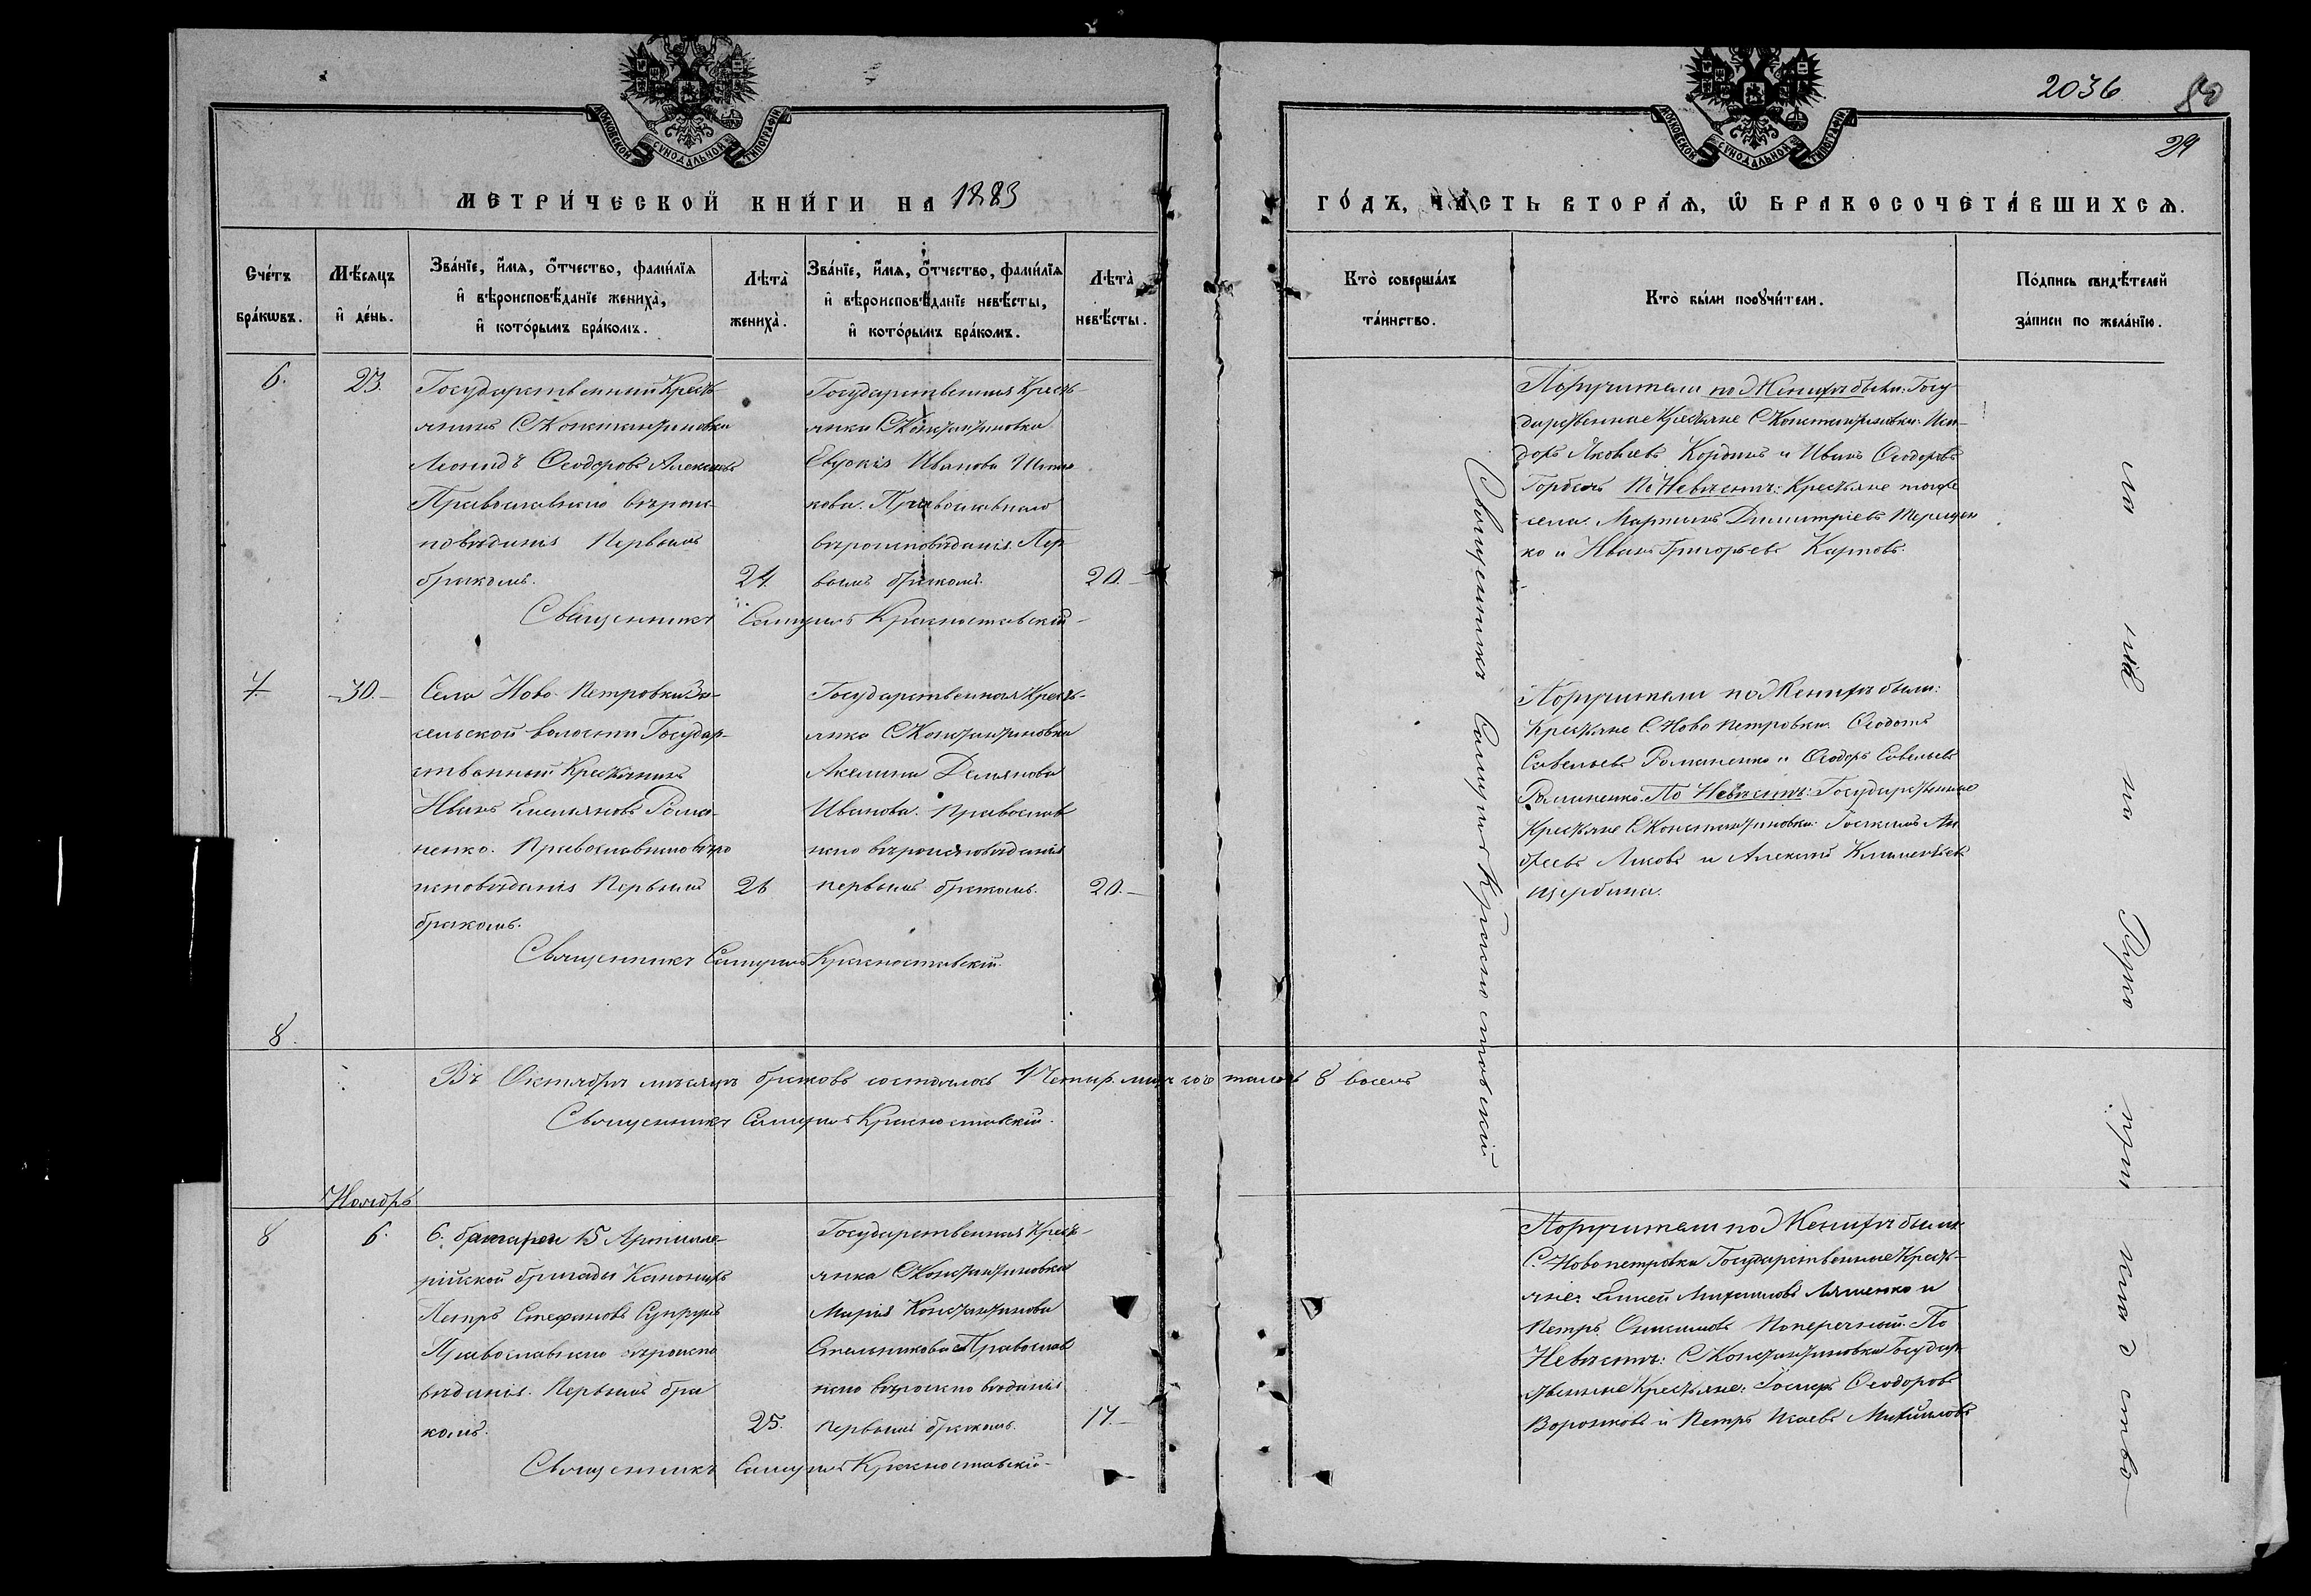 2036
80
29
МОСКОВСКОЙ СУНОДАЛЬНОЙ ТИПОГРАФІИ
МОСКОВСКОЙ СУНОДАЛЬНОЙ ТИПОГРАФІИ
МЕТРИ́ЧЕСКОЙ КНИ́ГИ НА 1883
ГО́ДЪ, ЧА́СТЬ ВТОРА́Ѧ, Ѽ БРАКОСОЧЕТА́ВШИХСѦ.
Сче́тъ бра́кѡвъ.
Мѣ́сяцъ и҆ де́нь.
Зва́нїе, и҆́мѧ, ѻ҆́тчество, фамѝлїѧ
и҆ вѣроисповѣ́данїе жениха̀,
и҆ кото́рымъ бра́комъ.
Лѣта̀ жениха̀.
Зва́нїе, и҆́мѧ, ѻ҆́тчество, фамѝлїѧ
и҆ вѣроисповѣ́данїе невѣ́сты,
и҆ кото́рымъ бра́комъ.
Лѣта̀ невѣ́сты.
Кто̀ соверша́лъ та́инство.
Кто̀ бы́ли поꙋчи́тели.
По́дпись свидѣ́телей
за́писи по жела́нїю.
6.
23.
Государственный Кресть-
янинъ С Константиновки
Леонидъ Ѳеодоровъ
Православнаго вѣроис-
повѣданія Первымъ
бракомъ.
24.
Государственная Кресть-
янка С Константиновки
Евдокія Иванова
кова. Православнаго
вѣроисповѣданія. Пер-
вымъ бракомъ.
20.
Священникъ Самуилъ Красноставскій
Поручители по Женихѣ были: Госу-
дарственные Крестьяне С Константиновки: Иси-
доръ Яковлевъ и Иванъ Ѳеодоровъ
Горбачъ По Невѣстѣ: Крестьяне того же
села. Мартинъ Димитріевъ Терещен
ко и Иванъ Григорьевъ Карповъ.
7.
30.
Села Ново-Петровки
сельской волости Государ-
ственный Крестьянинъ
Иванъ Емельяновъ Рома-
ненко. Православнаго вѣро
исповѣданія Первымъ
бракомъ.
26
Государственная Кресть-
янка С Константиновки
Акелина Демянова
Иванова. Православ
наго вѣроисповѣданія
первымъ бракомъ.
20.
Священникъ Самуилъ Красноставскій.
Поручители по Женихѣ были:
Крестьяне С. Ново Петровки. Ѳеодотъ
Савельевъ Романенко и Ѳеодоръ Савельевъ
Романенко. По Невѣстѣ: Государственные
Крестьяне С Константиновки: Ан
дреевъ и Алексѣй Климентьевъ
Щербина.
Священникъ Самуилъ Красноставскій
8.
Въ Октябрѣ мѣсяцѣ браковъ состоялось 8 восемь
Священникъ Самуилъ Красноставскій.
Ноябрь
8
6.
6. батареи 15 Артилле-
рійской бригады Канониръ
Петръ Стефановъ Супрунъ
Православнаго вѣроиспо
вѣданія. Первымъ бра
комъ.
25.
Государственная Кресть-
янка С Константиновки
Марія Константинова
Стельникова Православ
наго вѣроисповѣданія
первымъ бракомъ.
17.
Священникъ Самуилъ Красноставскій
Поручители по Женихѣ были
С. Новопетровки Государственные Кресть-
яне: Михаиловъ Ляшенко и
Петръ Поперечный. По
Невѣстѣ: С Константиновки Государ
ственные Крестьяне: Ѳеодоровъ
Воронковъ и Петръ Исаевъ Михайловъ